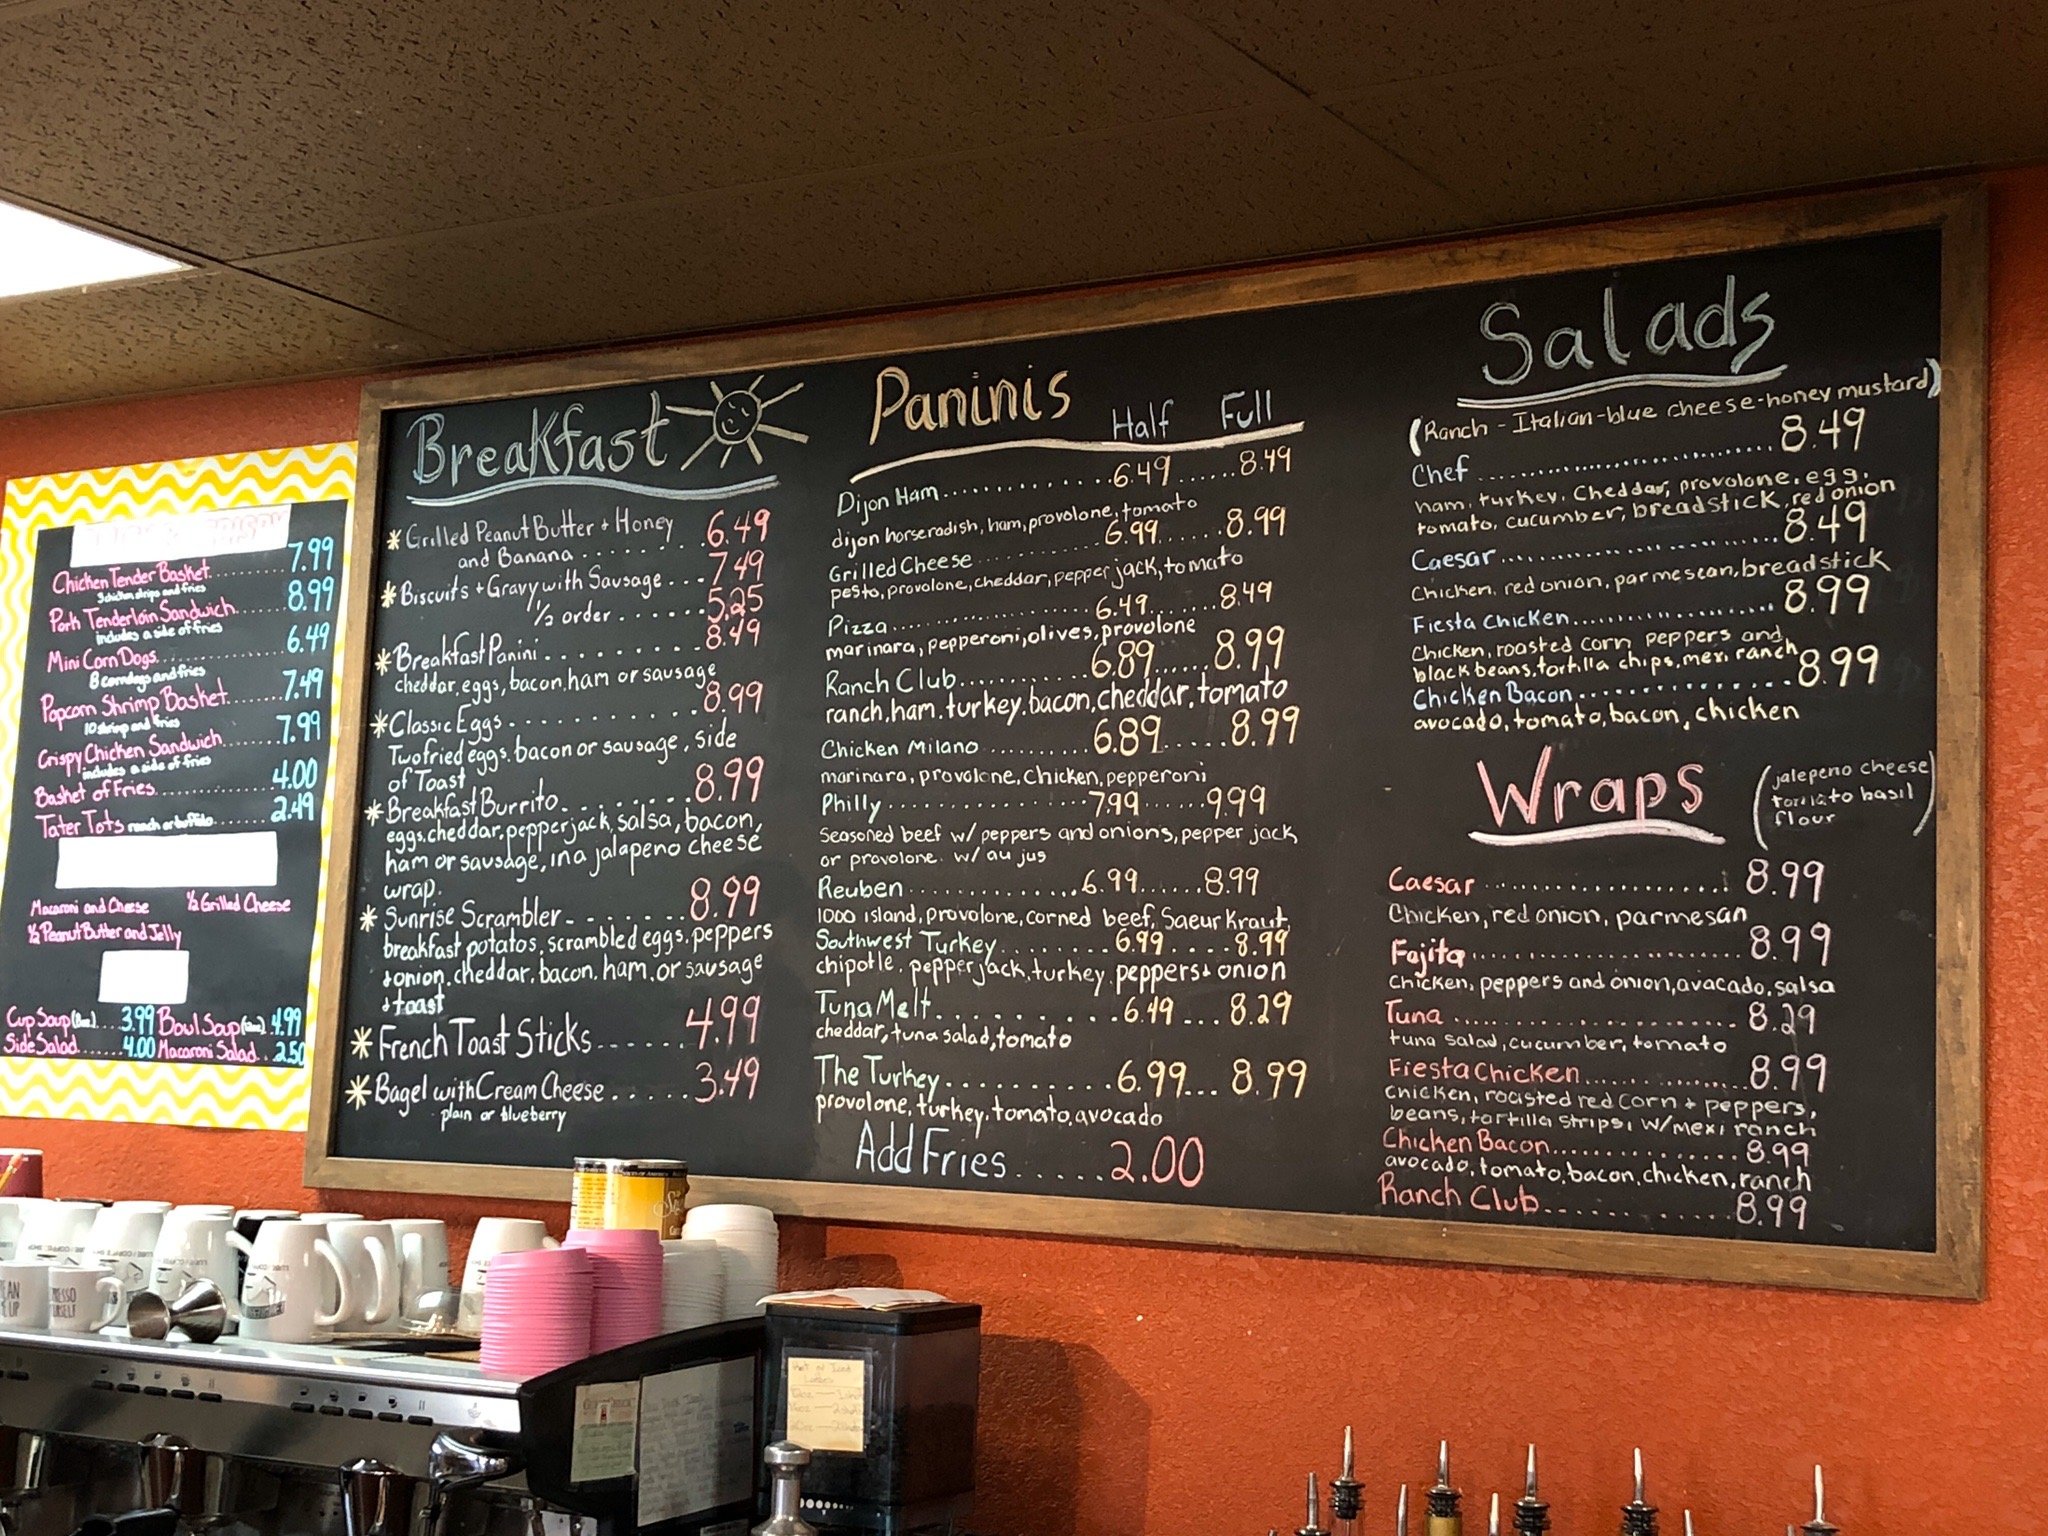 Chicken Tender Basket........ 7.99
3 chicken strips and fries
Pork Tenderloin Sandwich..... 8.99
includes a side of fries
Mini Corn Dogs........ 6.49
8 corndogs and fries
Popcorn Shrimp Basket...... 7.49
10 shrimp and fries
Crispy Chicken Sandwich...... 7.99
includes a side of fries
Basket of Fries........ 4.00
Tater Tots ranch or buffalo...... 2.49
Macaroni and Cheese ½ Grilled Cheese
½ Peanut Butter and Jelly
Cup Soup (8oz)... 3.99 Bowl Soup (12oz) 4.99
Side Salad...... 4.00 Macaroni Salad.. 2.50
Breakfast
*Grilled Peanut Butter + Honey 6.49
and Banana........
*Biscuits + Gravy with Sausage... 7.49
½ order...... 5.25
*Breakfast Panini.......... 8.49
cheddar, eggs, bacon, ham or sausage
*Classic Eggs........... 8.99
Two fried eggs, bacon or sausage, side
of Toast
*Breakfast Burrito........ 8.99
eggs, cheddar, pepper jack, salsa, bacon,
ham or sausage, in a jalapeno cheese
wrap.
*Sunrise Scrambler....... 8.99
breakfast potatos, scrambled eggs, peppers
+ onion, cheddar, bacon, ham, or sausage
+ toast
*French Toast Sticks...... 4.99
*Bagel with Cream Cheese..... 3.49
plain or blueberry
Paninis Half Full
Dijon Ham.............6.49......8.49
dijon horseradish, ham, provolone, tomato
Grilled Cheese...........6.99.......8.99
pesto, provolone, cheddar, pepper jack, tomato
Pizza...............6.49.......8.49
marinara, pepperoni, olives, provolone
Ranch Club...........6.89......8.99
ranch, ham, turkey, bacon, cheddar, tomato
Chicken Milano..........6.89......8.99
marinara, provolone, Chicken, pepperoni
Philly.................7.99......9.99
Seasoned beef w/ peppers and onions, pepper jack
or provolone. w/ au jus
Reuben..............6.99......8.99
1000 island, provolone, corned beef, Saeurkraut
Southwest Turkey........6.99....8.99
chipotle, pepper jack, turkey, peppers + onion
Tuna Melt..........6.49...8.29
cheddar, tuna salad, tomato
The Turkey..........6.99...8.99
provolone, turkey, tomato, avocado
Add Fries.....2.00
Salads
(Ranch - Italian - blue cheese - honey mustard)
Chef............................ 8.49
ham, turkey, Cheddar, provolone, egg,
tomato, cucumber, breadstick, red onion
Caesar......................... 8.49
Chicken, red onion, parmesean, breadstick
Fiesta Chicken.................. 8.99
Chicken, roasted corn peppers and
black beans, tortilla chips, mexi ranch
Chicken Bacon................8.99
avocado, tomato, bacon, chicken
Wraps (jalepeno cheese
tomato basil
flour)
Caesar......................... 8.99
Chicken, red onion, parmesan
Fajita........................ 8.99
Chicken, peppers and onion, avacado, salsa
Tuna......................... 8.29
tuna salad, cucumber, tomato
Fiesta Chicken.................8.99
chicken, roasted red corn + peppers,
beans, tortilla strips, w/ mexi ranch
Chicken Bacon................ 8.99
avocado, tomato, bacon, chicken, ranch
Ranch Club................ 8.99